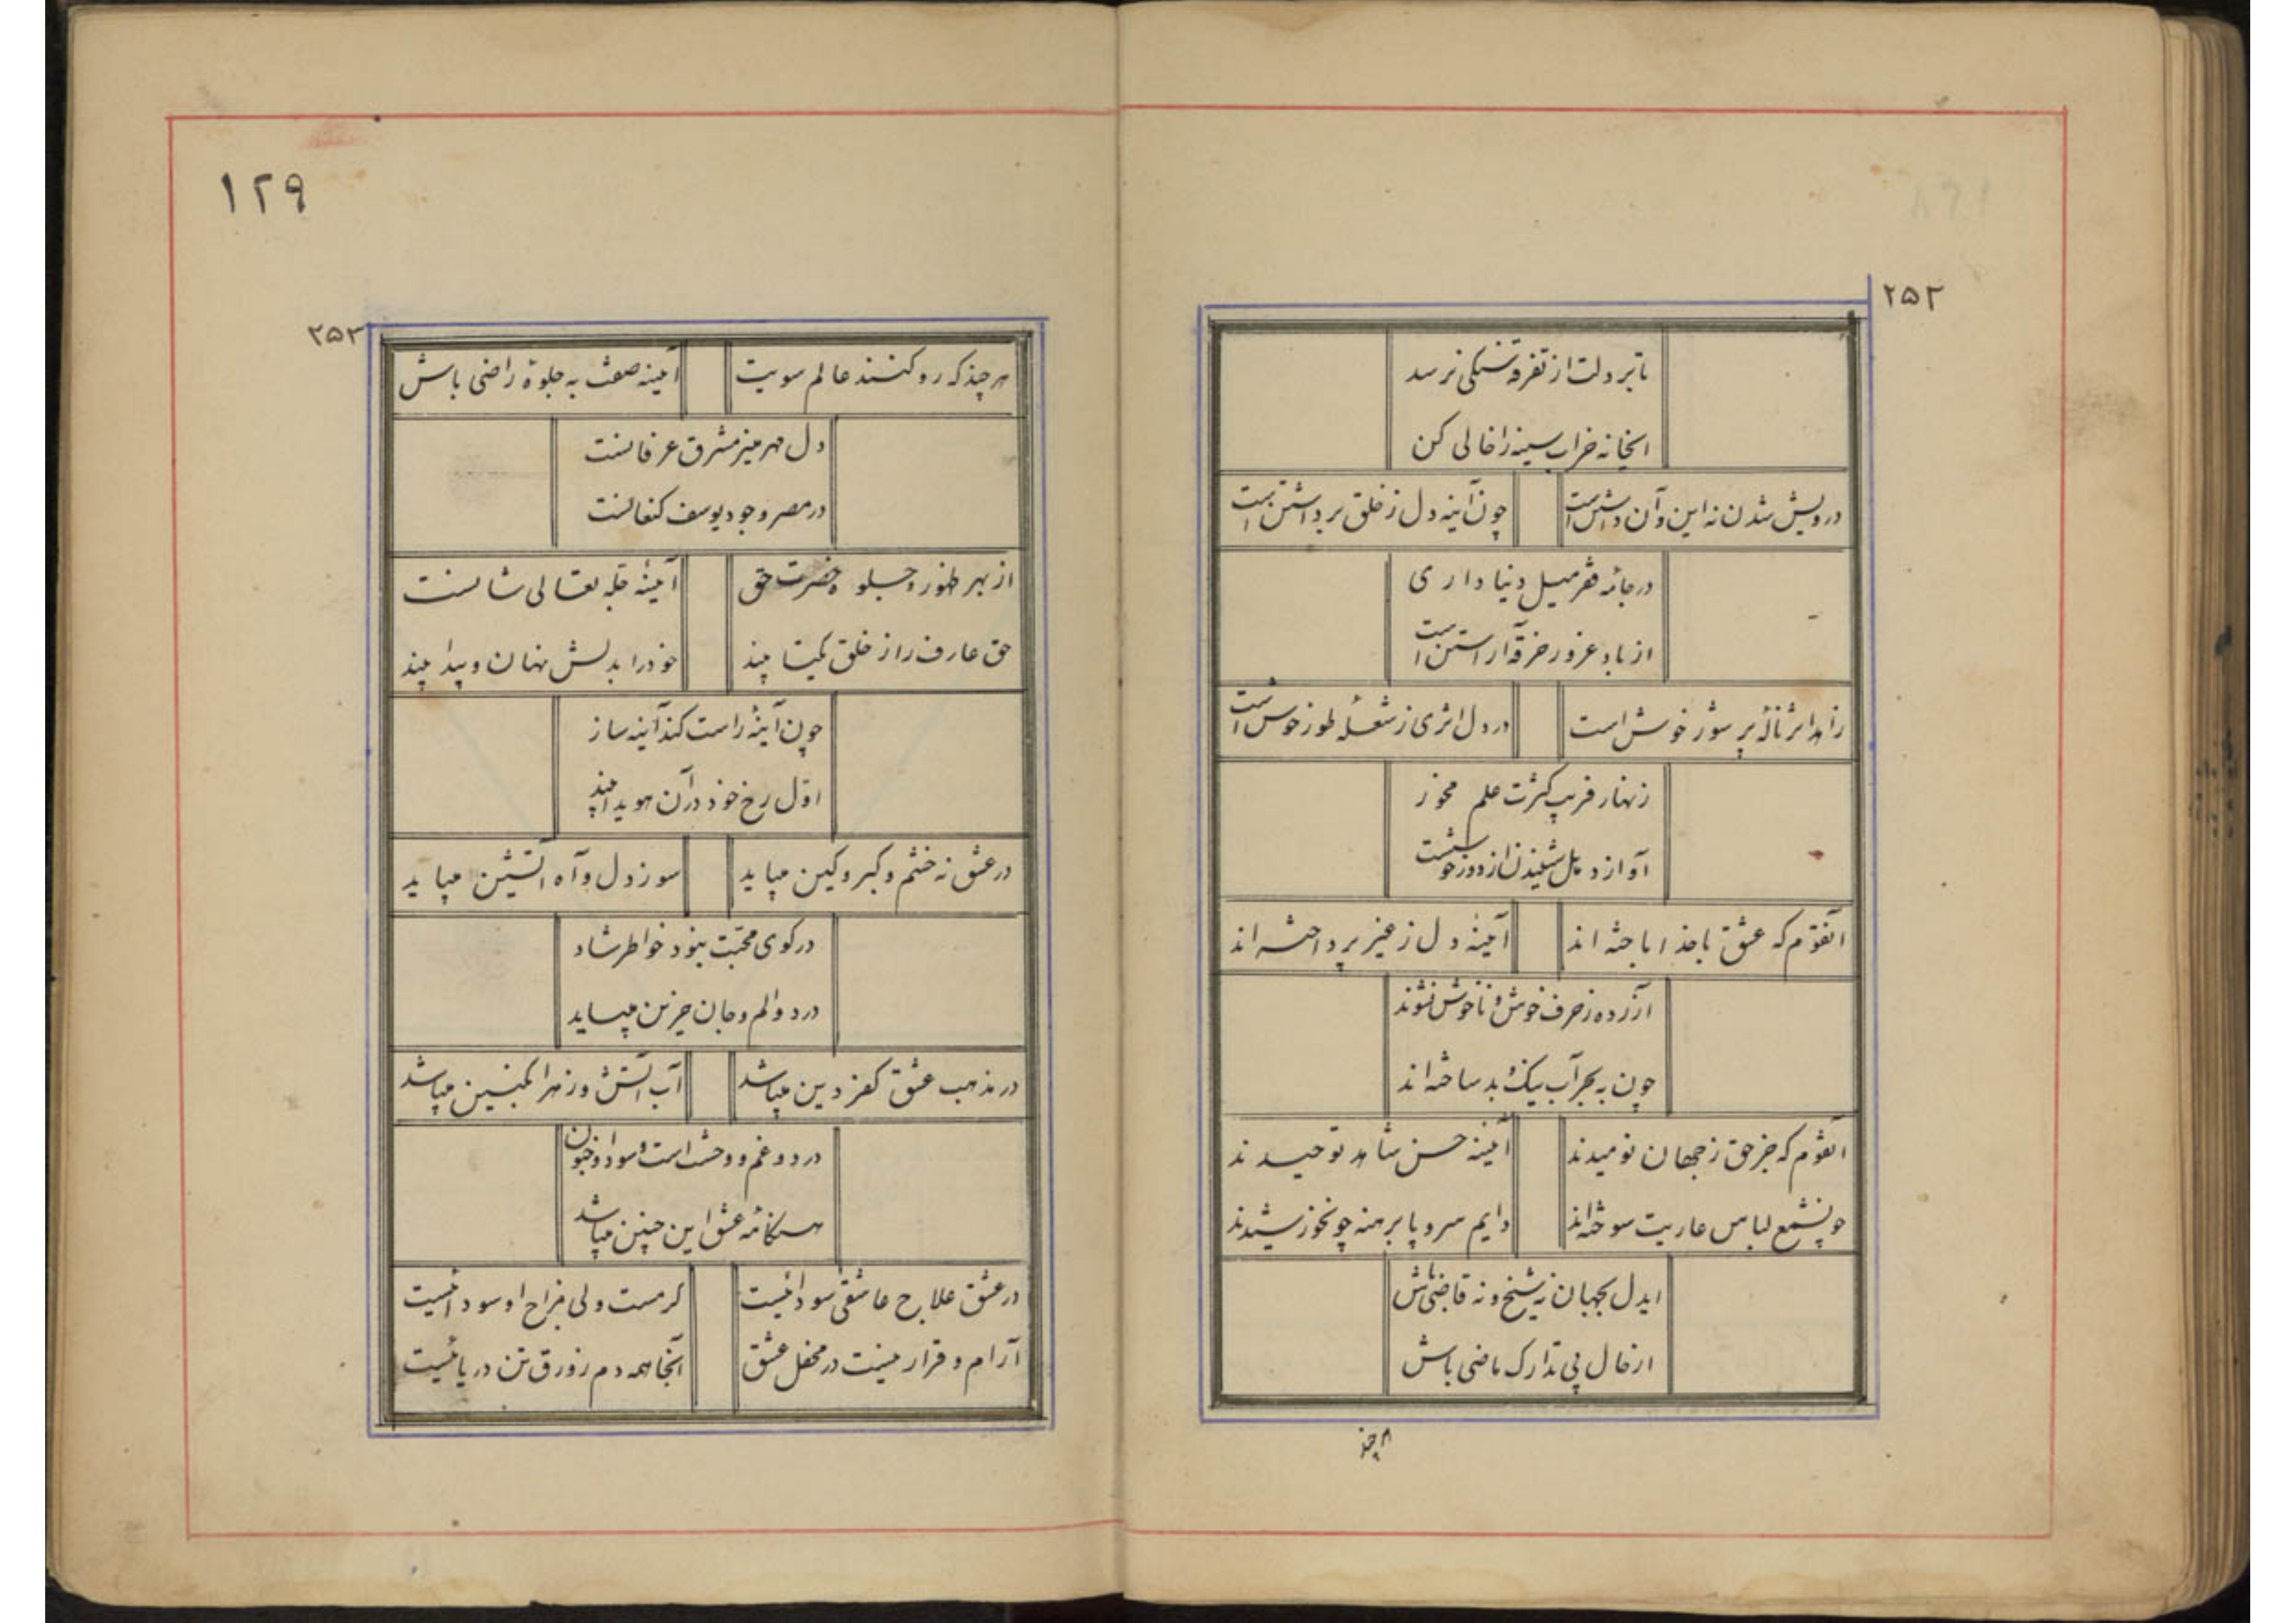 ۲۵۲
تا بر دلت از تفرقه تنگی نرسد
اینخانه خراب سینه را خالی کن
درویش شدن نه این و آن داشتن است
چون آینه دل ز خلق برداشتن است
در جامه فقر میل دنیا داری
از باد غرور خرقه آراستن است
زاهد اثر ناله پر سوز خوش است
در دل اثری ز شعله طور خوش است
زنهار فریب کثرت علم مخور
آواز دهل شنیدن از دور خوشست
آنقوم که عشق با خدا باخته اند
آئینه دل ز غیر پرداخته اند
آزرده ز حرف خوش و ناخوش نشوند
چون بحر به آب نیک و بد ساخته اند
آنقوم که جز حق ز جهان نومیدند
آئینه حسن شاهد توحیدند
چونشمع لباس عاریت سوخته اند
دایم سر و پا برهنه چونخورشیدند
ایدل بجهان نه شیخ و نه قاضی باش
از حال پی تدارک ماضی باش
هر چند
۱۲۹
۲۵۳
هر چند که رو کنند عالم سویت
آئینه صفت به جلوۀ راضی باش
دل مهر منیر مشرق عرفانست
در مصر وجود یوسف کنعانست
از بهر ظهور و جلوه حضرت حق
آئینه جل تعالی شانست
حق عارف را ز خلق یکتا بیند
خود را بدلش نهان و پیدا بیند
چون آینه راست کند آینه ساز
اول رخ خود در آن هویدا بیند
در عشق نه خشم و کبر و کین میباید
سوز دل و آه آتشین میباید
در کوی محبت نبود خواطر شاد
درد و الم و جان حزین میباید
در مذهب عشق کفر دین میباشد
آب آتش و زهر انگبین میباشد
درد و غم و وحشت است و سودا و جنون
هنگامه عشق این چنین میباشد
در عشق علاج عاشقی سودا نیست
گرمست ولی مزاج او سودا نیست
آرام و قرار نیست در محفل عشق
آنجا همه دم زورق تن دریائیست